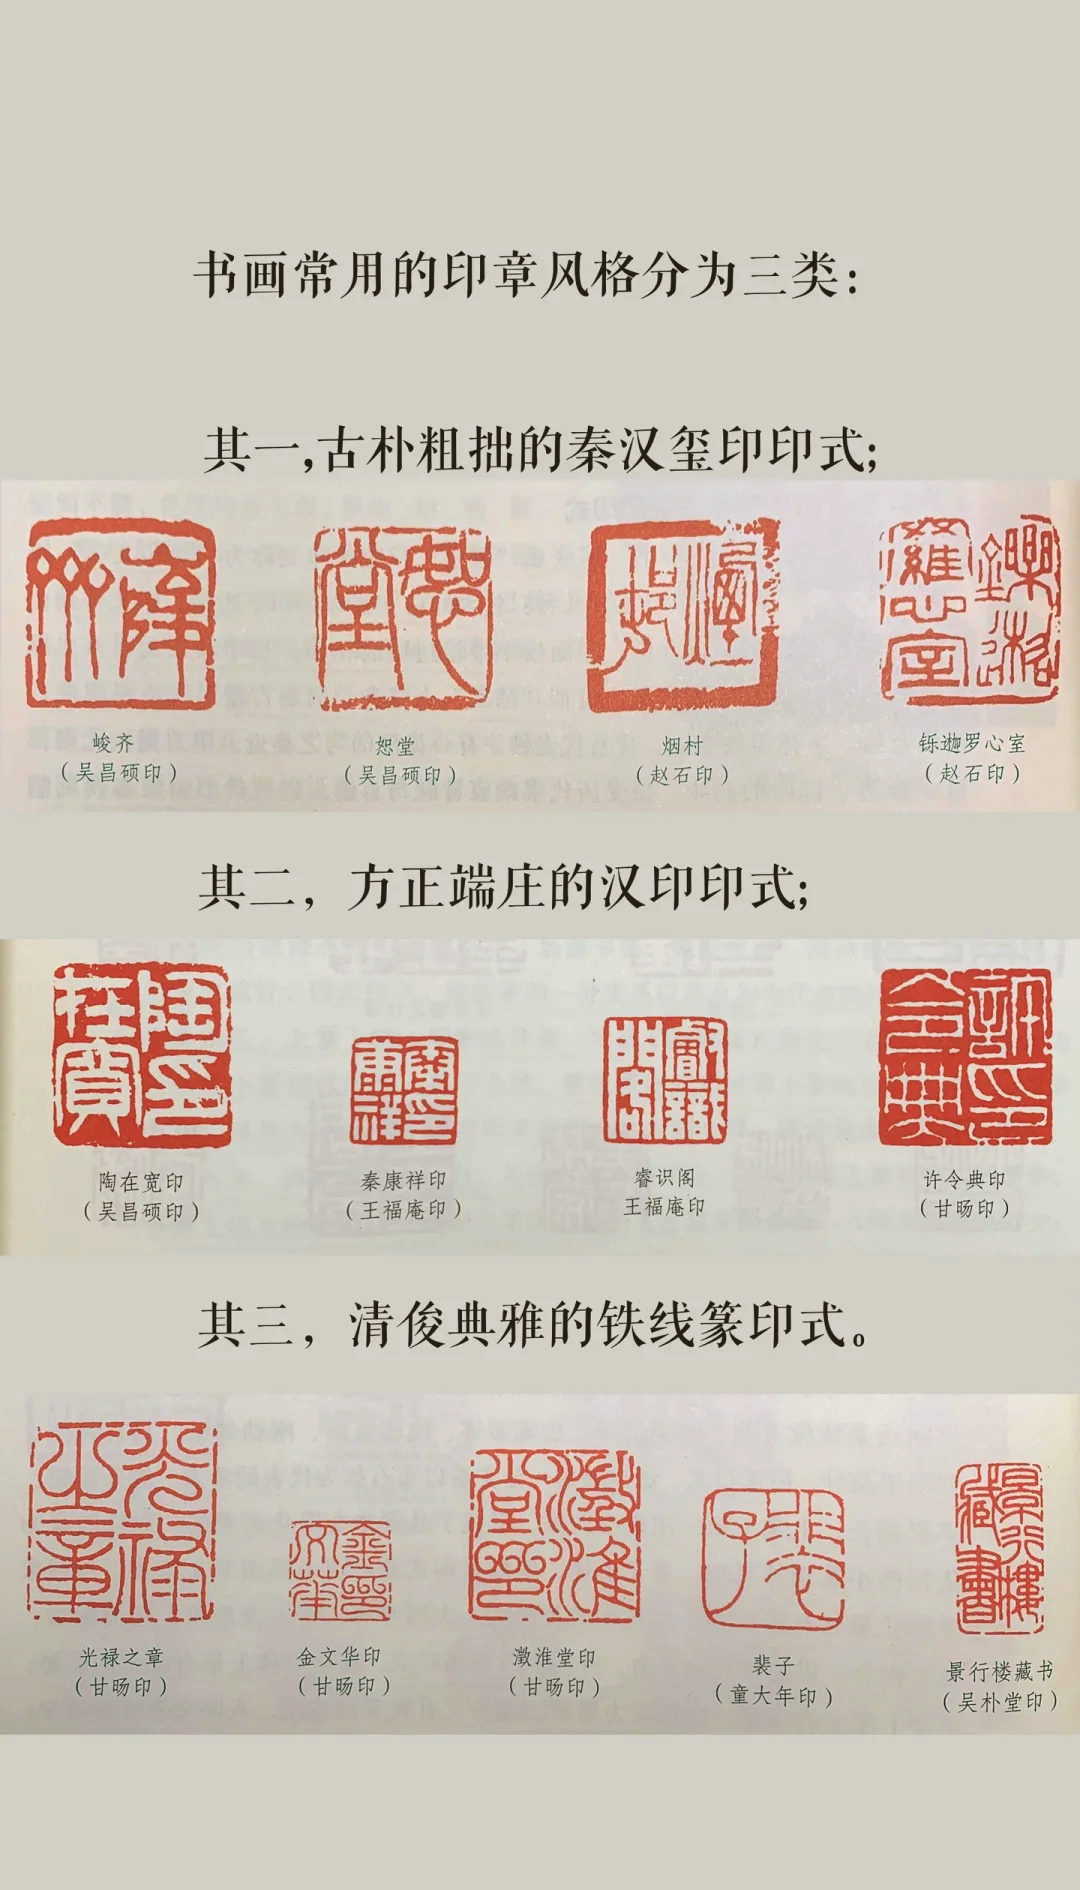 书画常用的印章风格分为三类：
其一，古朴粗拙的秦汉玺印印式；
峻齐
（吴昌硕印）
恕堂
（吴昌硕印）
烟村
（赵石印）
铄迦罗心室
（赵石印）
其二，方正端庄的汉印印式；
陶在宽印
（吴昌硕印）
秦康祥印
（王福庵印）
睿识阁
王福庵印
许令典印
（甘旸印）
其三，清俊典雅的铁线篆印式。
光禄之章
（甘旸印）
金文华印
（甘旸印）
澂淮堂印
（甘旸印）
裴子
（童大年印）
景行楼藏书
（吴朴堂印）